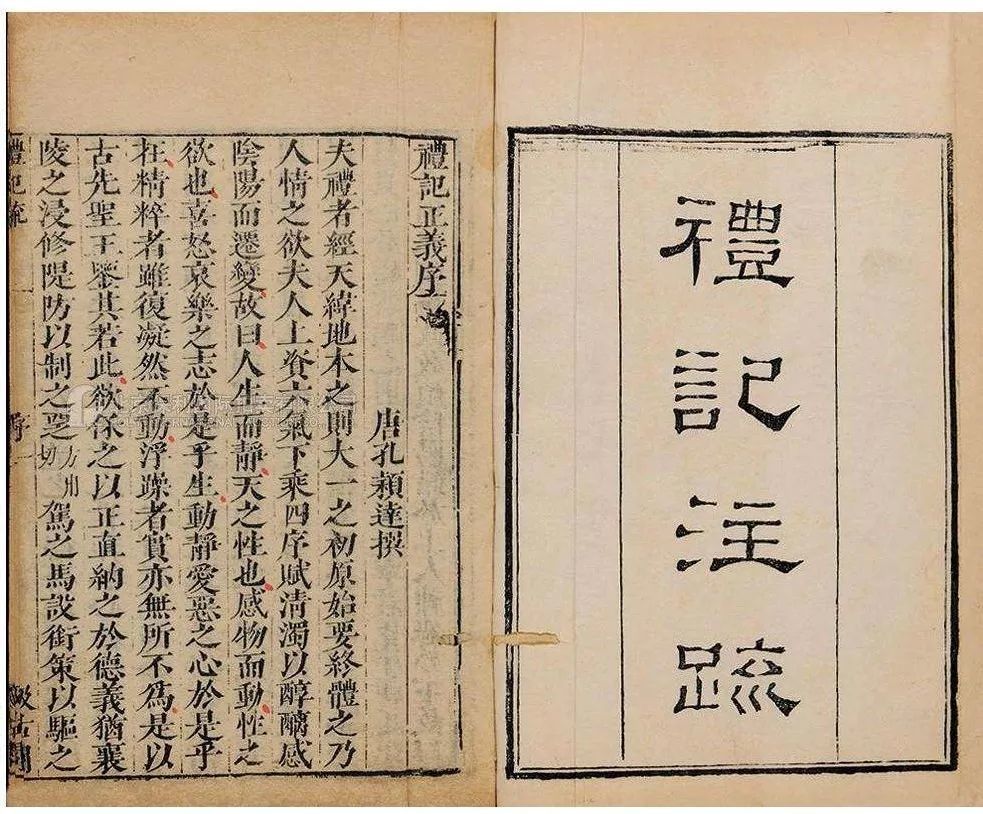 禮記注疏
禮記正義序
唐孔穎達撰
夫禮者經天緯地本之則大一之初原始要終體之乃
人情之欲夫人上資六氣下乘四序賦清濁以醇醨感
陰陽而遷變故曰人生而靜天之性也感物而動性之
欲也喜怒哀樂之志於是乎生動靜愛惡之心於是乎
在精粹者雖復凝然不動浮躁者實亦無所不為是以
古先聖王鑒其若此欲保之以正直納之於德義猶襄
陵之浸修隄防以制之覂方用切駕之馬設銜策以驅之
禮記疏 序 一 汲古閣